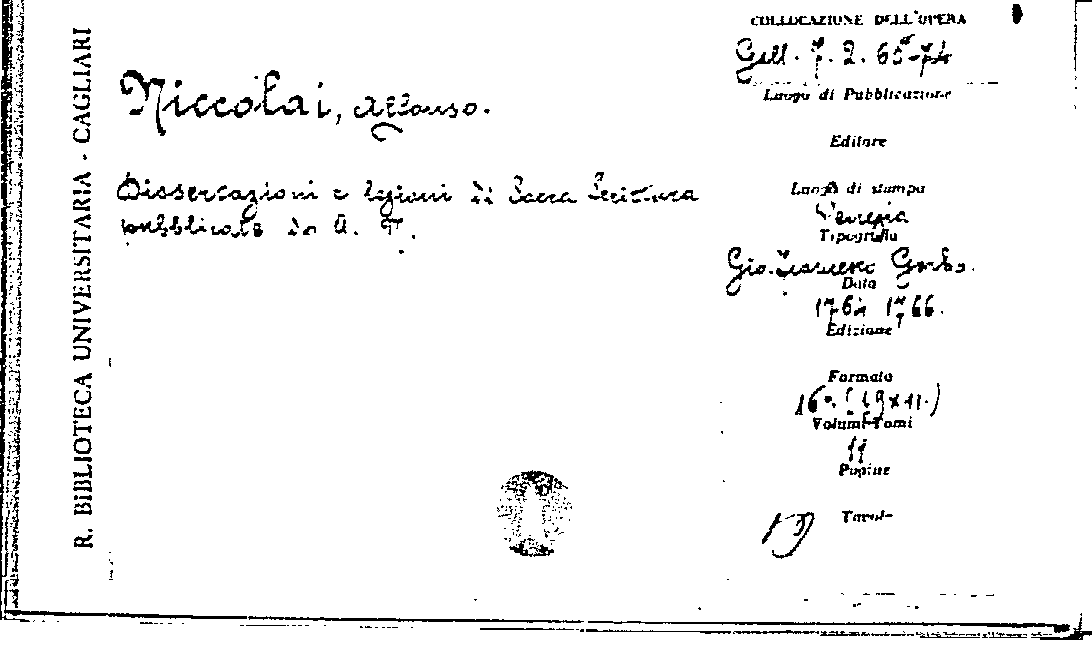 R. BIBLIOTECA UNIVERSITARIA - CAGLIARI
Niccolai, Alfonso.
Dissertazioni e lezioni di Sacra Scrittura
pubblicate da A. N.
COLLOCAZIONE DELL'OPERA
Gall. 7. 2. 65-74
Luogo di Pubblicazione
Editore
Luogo di stampa
Venezia
Tipografia
Gio.
Data
1766.
Edizione
Formato
16° (19 x 11.)
Volumi-Tomi
11
Pagine
Tavole